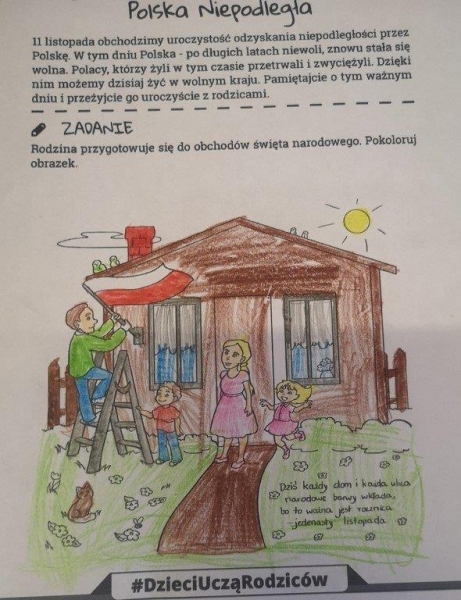 Polska Niepodległa
11 listopada obchodzimy uroczystość odzyskania niepodległości przez
Polskę. W tym dniu Polska - po długich latach niewoli, znowu stała się
wolna. Polacy, którzy żyli w tym czasie przetrwali i zwyciężyli. Dzięki
nim możemy dzisiaj żyć w wolnym kraju. Pamiętajcie o tym ważnym
dniu i przeżyjcie go uroczyście z rodzicami.
ZADANIE
Rodzina przygotowuje się do obchodów święta narodowego. Pokoloruj
obrazek.
Dziś każdy dom i każda ulica
narodowe barwy wkłada,
bo to ważna jest rocznica
jedenasty listopada
#DzieciUcząRodziców